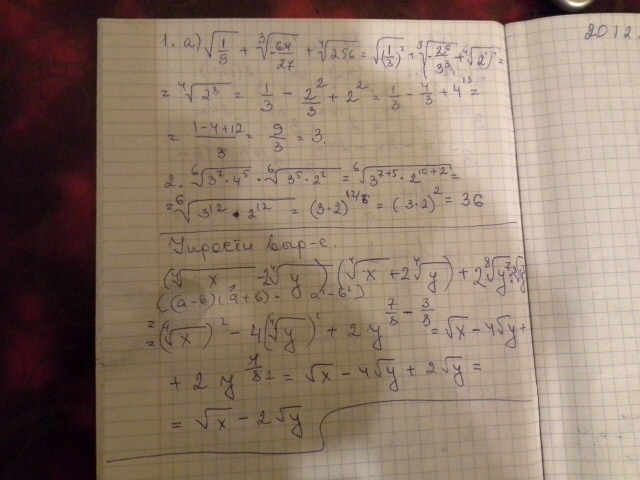 2012.
1. а) √(1/9) + ∛(-64/27) + ∜256 = √(1/3)² + ∛(-2⁶/3³) + ∜(2²)⁴ =
= ∜2⁸ = 1/3 - 2²/3 + 2² = 1/3 - 4/3 + 4 =
= (1-4+12)/3 = 9/3 = 3.
2. ⁶√(3⁷·4⁵) · ⁶√(3⁵·2²) = ⁶√(3⁷⁺⁵·2¹⁰⁺²) =
= ⁶√(3¹²·2¹²) = (3·2)^(12/6) = (3·2)² = 36
Упрости выр-е.
(∜x - 2∜y)(∜x + 2∜y) + 2⁸√y⁷ :
((a-b)(a+b) = a²-b²)
= (∜x)² - 4(∜y)² + 2y^(7/8 - 3/8) = √x - 4√y +
+ 2y^(4/8) = √x - 4√y + 2√y =
= √x - 2√y